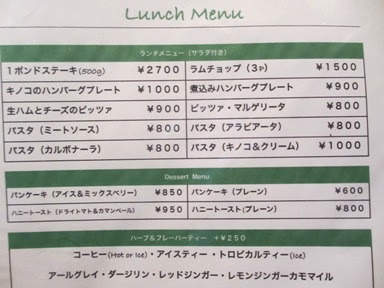 Lunch Menu
ランチメニュー (サラダ付き)
1ポンドステーキ(500g) ¥2700 ラムチョップ (3P) ¥1500
キノコのハンバーグプレート ¥1000 煮込みハンバーグプレート ¥900
生ハムとチーズのピッツァ ¥900 ピッツァ・マルゲリータ ¥800
パスタ (ミートソース) ¥800 パスタ (アラビアータ) ¥800
パスタ (カルボナーラ) ¥800 パスタ (キノコ&クリーム) ¥1000
Dessert Menu
パンケーキ (アイス&ミックスベリー) ¥850 パンケーキ (プレーン) ¥600
ハニートースト (ドライトマト&カマンベール) ¥950 ハニートースト(プレーン) ¥800
ハーブ&フレーバーティー +¥250
コーヒー(Hot or Ice)・アイスティー・トロピカルティー(Ice)
アールグレイ・ダージリン・レッドジンガー・レモンジンガーカモマイル